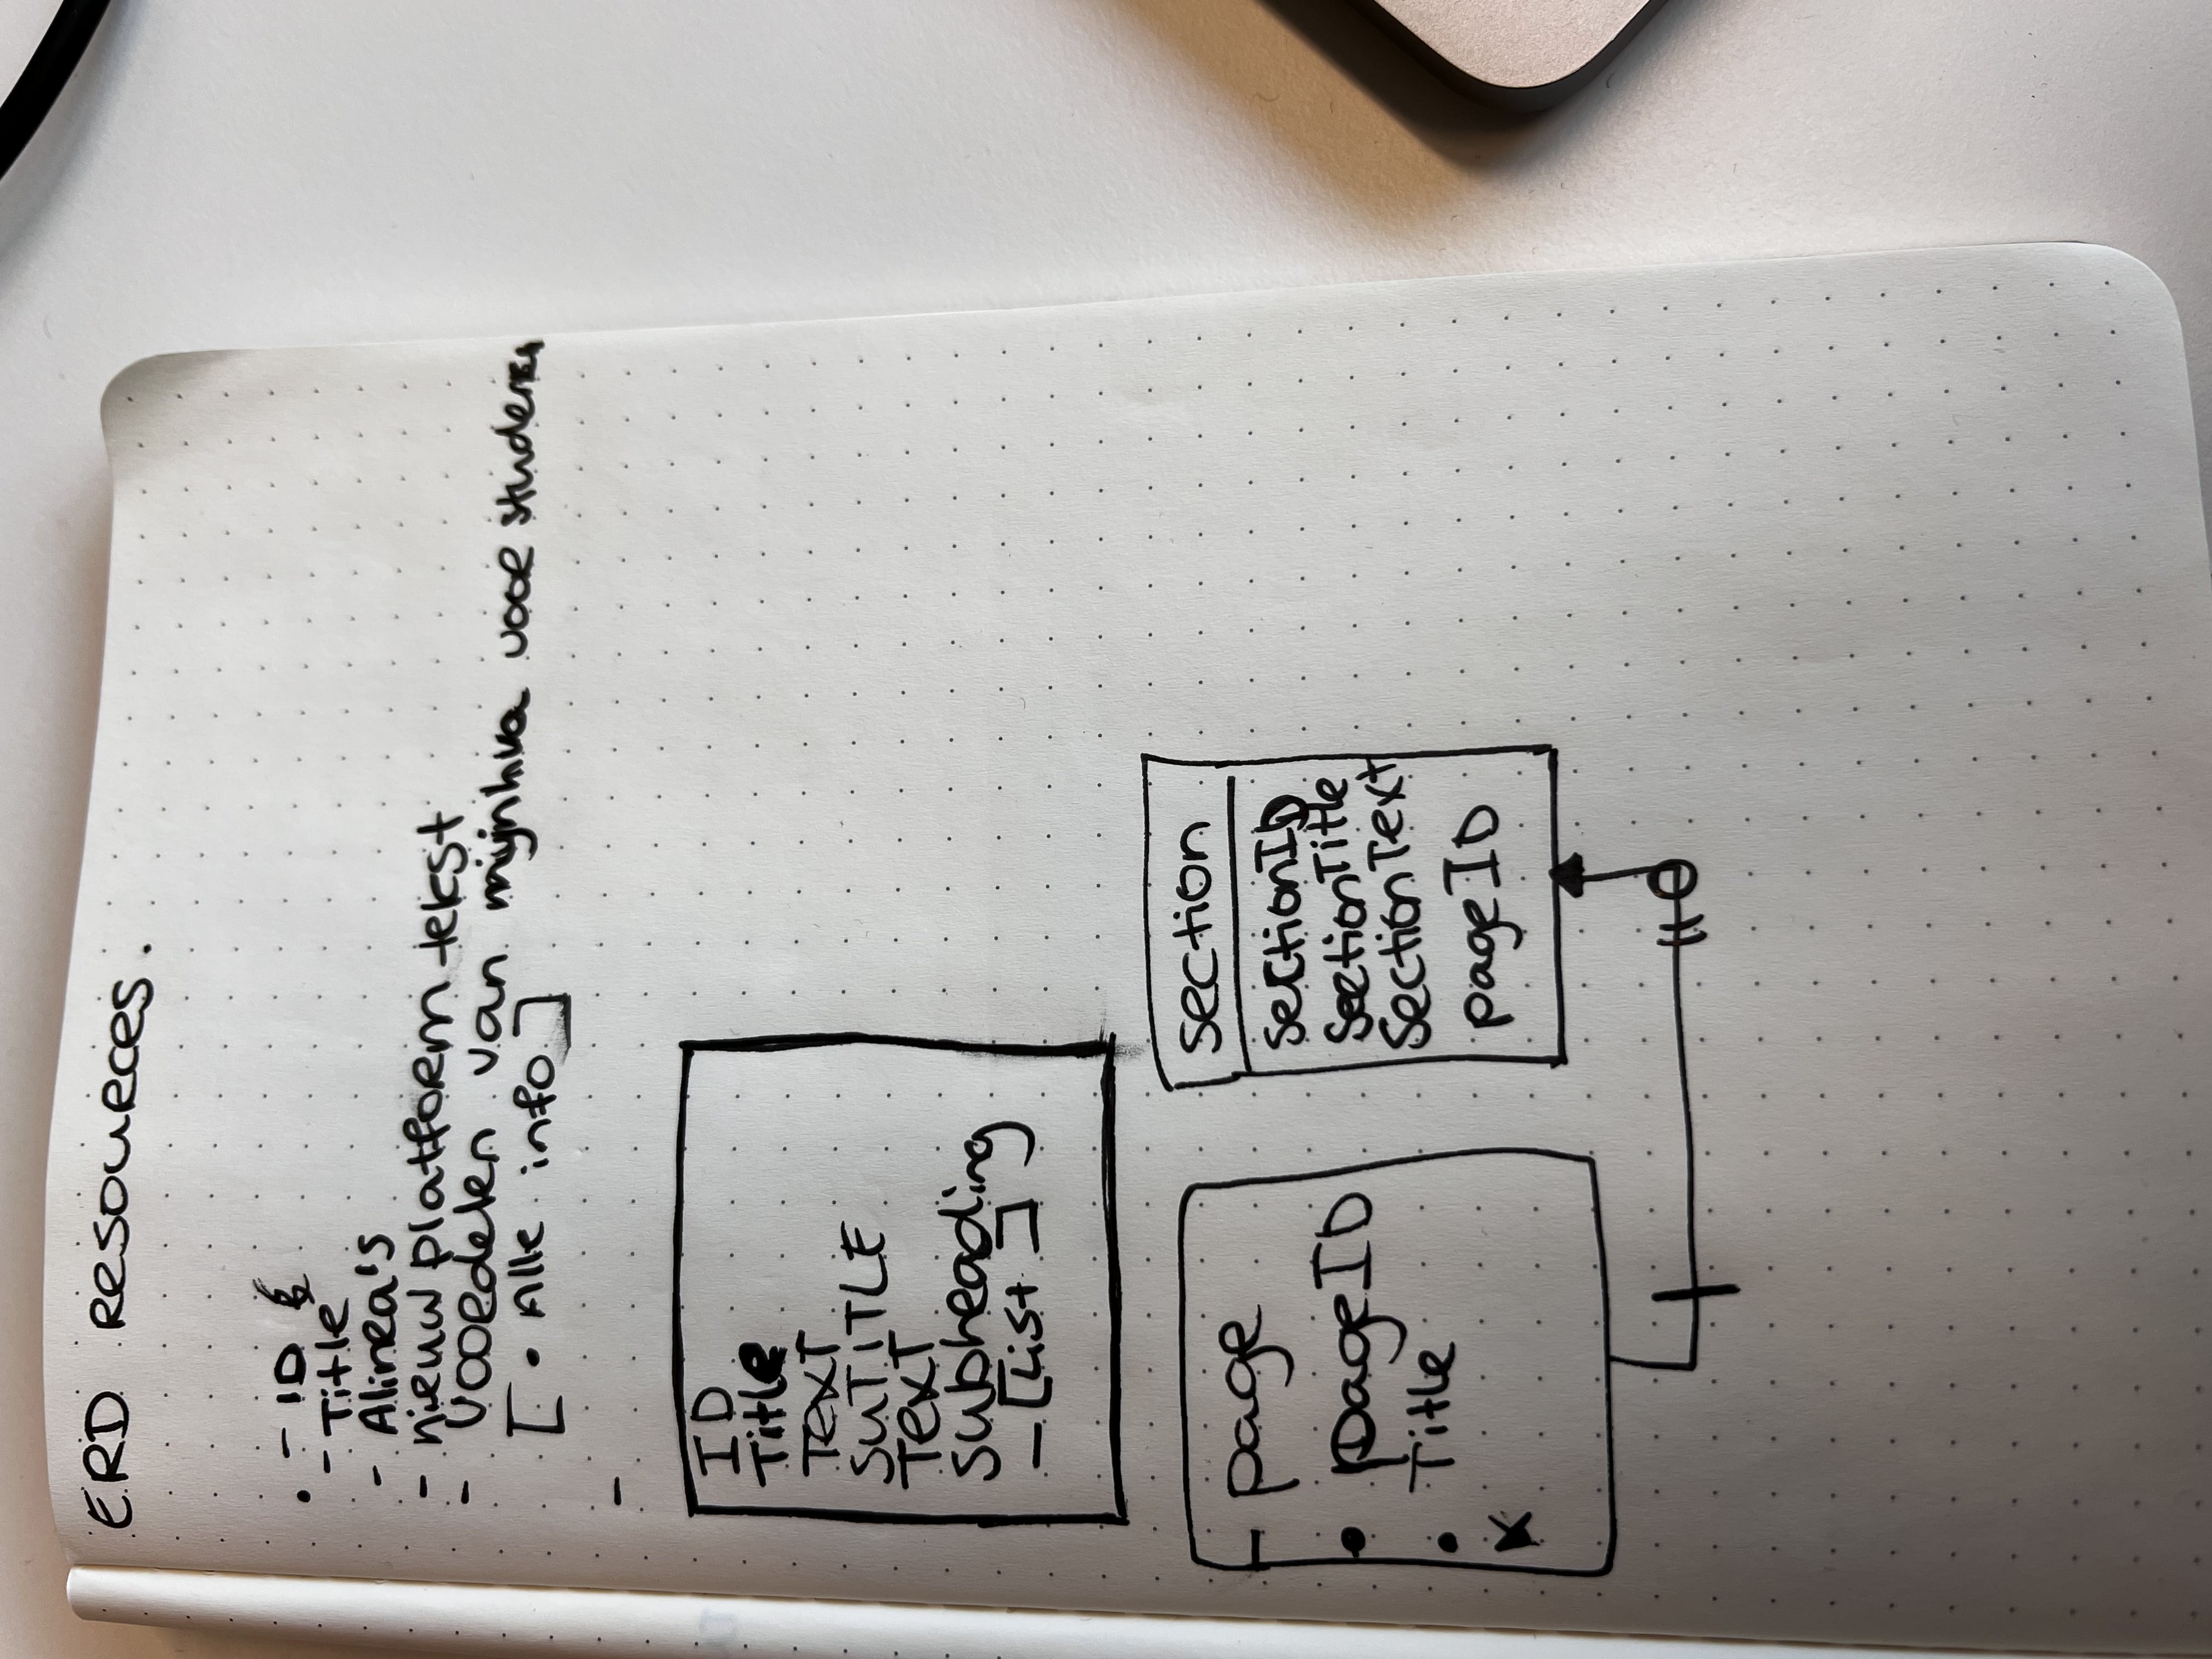 ERD Resources.
. - ID
- Title
- Alinea's
- nieuw platform tekst
- Voordelen van mijnhva voor studenten
[ • Alle info ]
-
ID
Title
TEXT
SUTITLE
TEXT
Subheading
- [List ]
- page
• pageID
• Title
section
SectionID
SectionTitle
SectionText
pageID